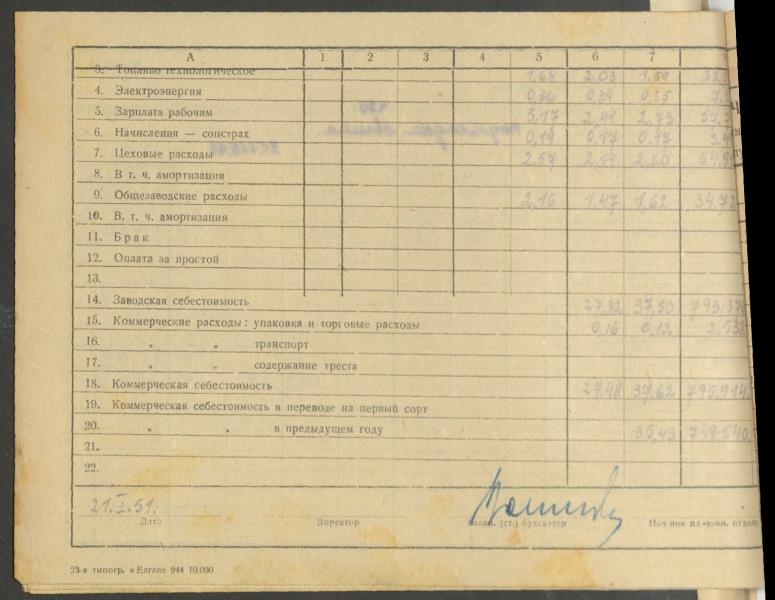 А 1 2 3 4 5 6 7
3. Топливо технологическое 1,68 2,03 1,59
4. Электроэнергия 0,36 0,39 0,35
5. Зарплата рабочим 3,17 2,41 2,73
6. Начисления — соцстрах 0,19 0,17 0,17
7. Цеховые расходы 2,57 2,19 2,60
8. В т. ч. амортизация
9. Общезаводские расходы 2,16 1,47 1,62 34,72
10. В. т. ч. амортизация
11. Брак
12. Оплата за простой
13.
14. Заводская себестоимость 27,32 37,50 793.376
15. Коммерческие расходы: упаковка и торговые расходы 0,16 0,12 2.538
16. „ „ транспорт
17. „ „ содержание треста
18. Коммерческая себестоимость 27,48 37,62 795.914
19. Коммерческая себестоимость в переводе на первый сорт
20. „ „ в предыдущем году 35,43 749.540
21.
22.
21.I.51.
Дата Директор Главн. (ст.) бухгалтер
23-я типогр. в Елгаве 944 10.000